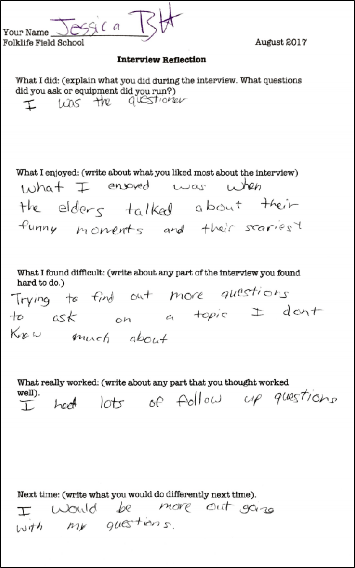 Your Name Jessica BH
Folklife Field School August 2017
Interview Reflection
What I did: (explain what you did during the interview. What questions
did you ask or equipment did you run?)
I was the questioner
What I enjoyed: (write about what you liked most about the interview)
What I enjoyed was when
the elders talked about their
funny moments and their scariest
What I found difficult: (write about any part of the interview you found
hard to do.)
Trying to find out more questions
to ask on a topic I dont
Know much about
What really worked: (write about any part that you thought worked
well).
I had lots of follow up questions
Next time: (write what you would do differently next time).
I would be more out going
with my questions.